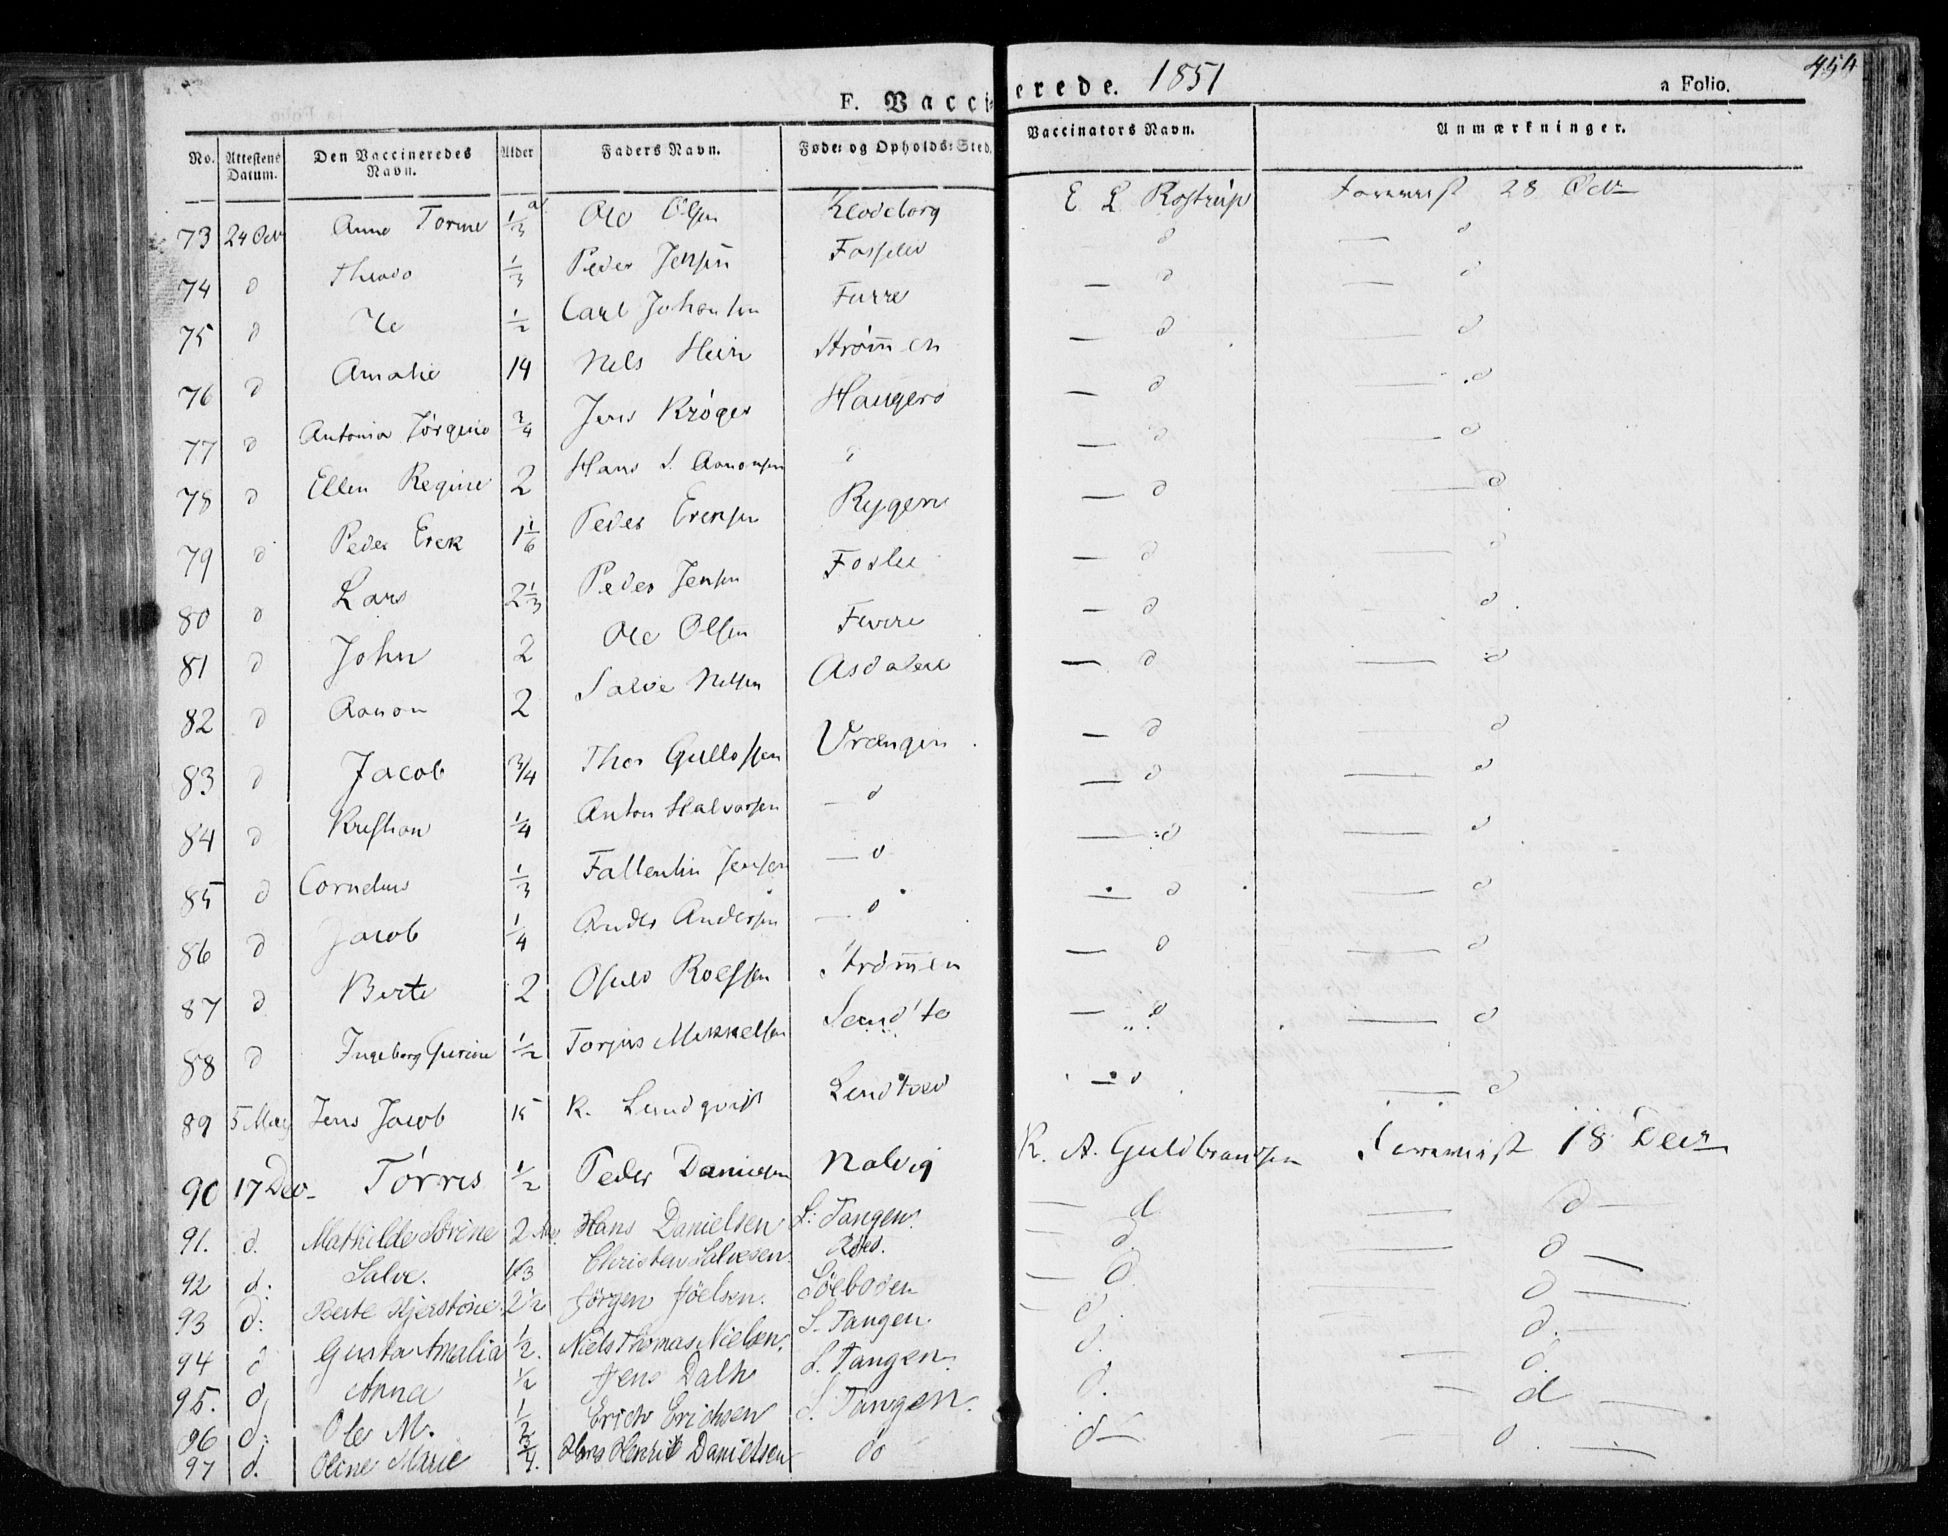 454
F. Vaccinerede. 1851 a Folio.
No. Attestens Datum. Den Vaccineredes Navn. Alder Faders Navn. Føde- og Opholds-Sted. Vaccinators Navn. Anmærkninger.
73 24 Octr Anne Torine 1/3 Ole Olsen Klodeborg E. L. Rostrup Forevist 28 Octr
74 d Thrado 1/3 Peder Jensen d — d
75 d 1/2 Carl Johansen Furre — d — d
76 d Amalie 14 Nels Hein Strømmen — d — d
77 d Antonia Jørgine 3/4 Jens Krøger Haugerø — d — d
78 d Ellen Regine 2 Hans S. Aanonsen — d — d
79 d Peder Erek 1 1/6 Peder Erensen Rygene — d — d
80 d Lars 2 1/3 Peder Jensen Foslie — d — d
81 d John 2 Ole Olsen Fevere — d — d
82 d Aanon 2 Salve Nelsen Asdalene — d — d
83 d Jacob 3/4 Thor Gullofsen Vrængen — d — d
84 d Kristian 1/4 Anton Halvorsen — d — d — d
85 d Cornelius 1/3 Fallentin Jensen — d — d — d
86 d Jacob 1/4 Andes Andersen — d — d — d
87 d Berte 2 Osuld Roelfsen Strømmen — d — d
88 d Ingeborg Gurine 1/2 Torjus Mikkelsen — d — d
89 5 May Jens Jacob 15 K. Lundqvist — d — d
90 17 Dec Tørres 1/2 Peder Danielsen Nalvig K. A. Guldbrandsen Forevist 18 Decr
91. d. Mathilde Sørine 2 Hans Danielsen L: Tangen. — d — d —
92 d: Salve. 1/3 Christen Salvesen. Røed. — d. — d —
93 d: Berte Kjerstine 2 1/2 Jörgen Jöelsen. Söeboden — d. d —
94 d Gusta Amalia 1/2. Niels Thomas Nielsen. L. Tangen. d. d. —
95. d, Anna 1/2 Jens Dalh L. Tangen. d. — d.
96 d: Ole M. 1/2 Erich Erichsen L. Tangen. d. — d —
97 d. Oline Marie 3/4. Hans Henrik Danielsen do d— d. —